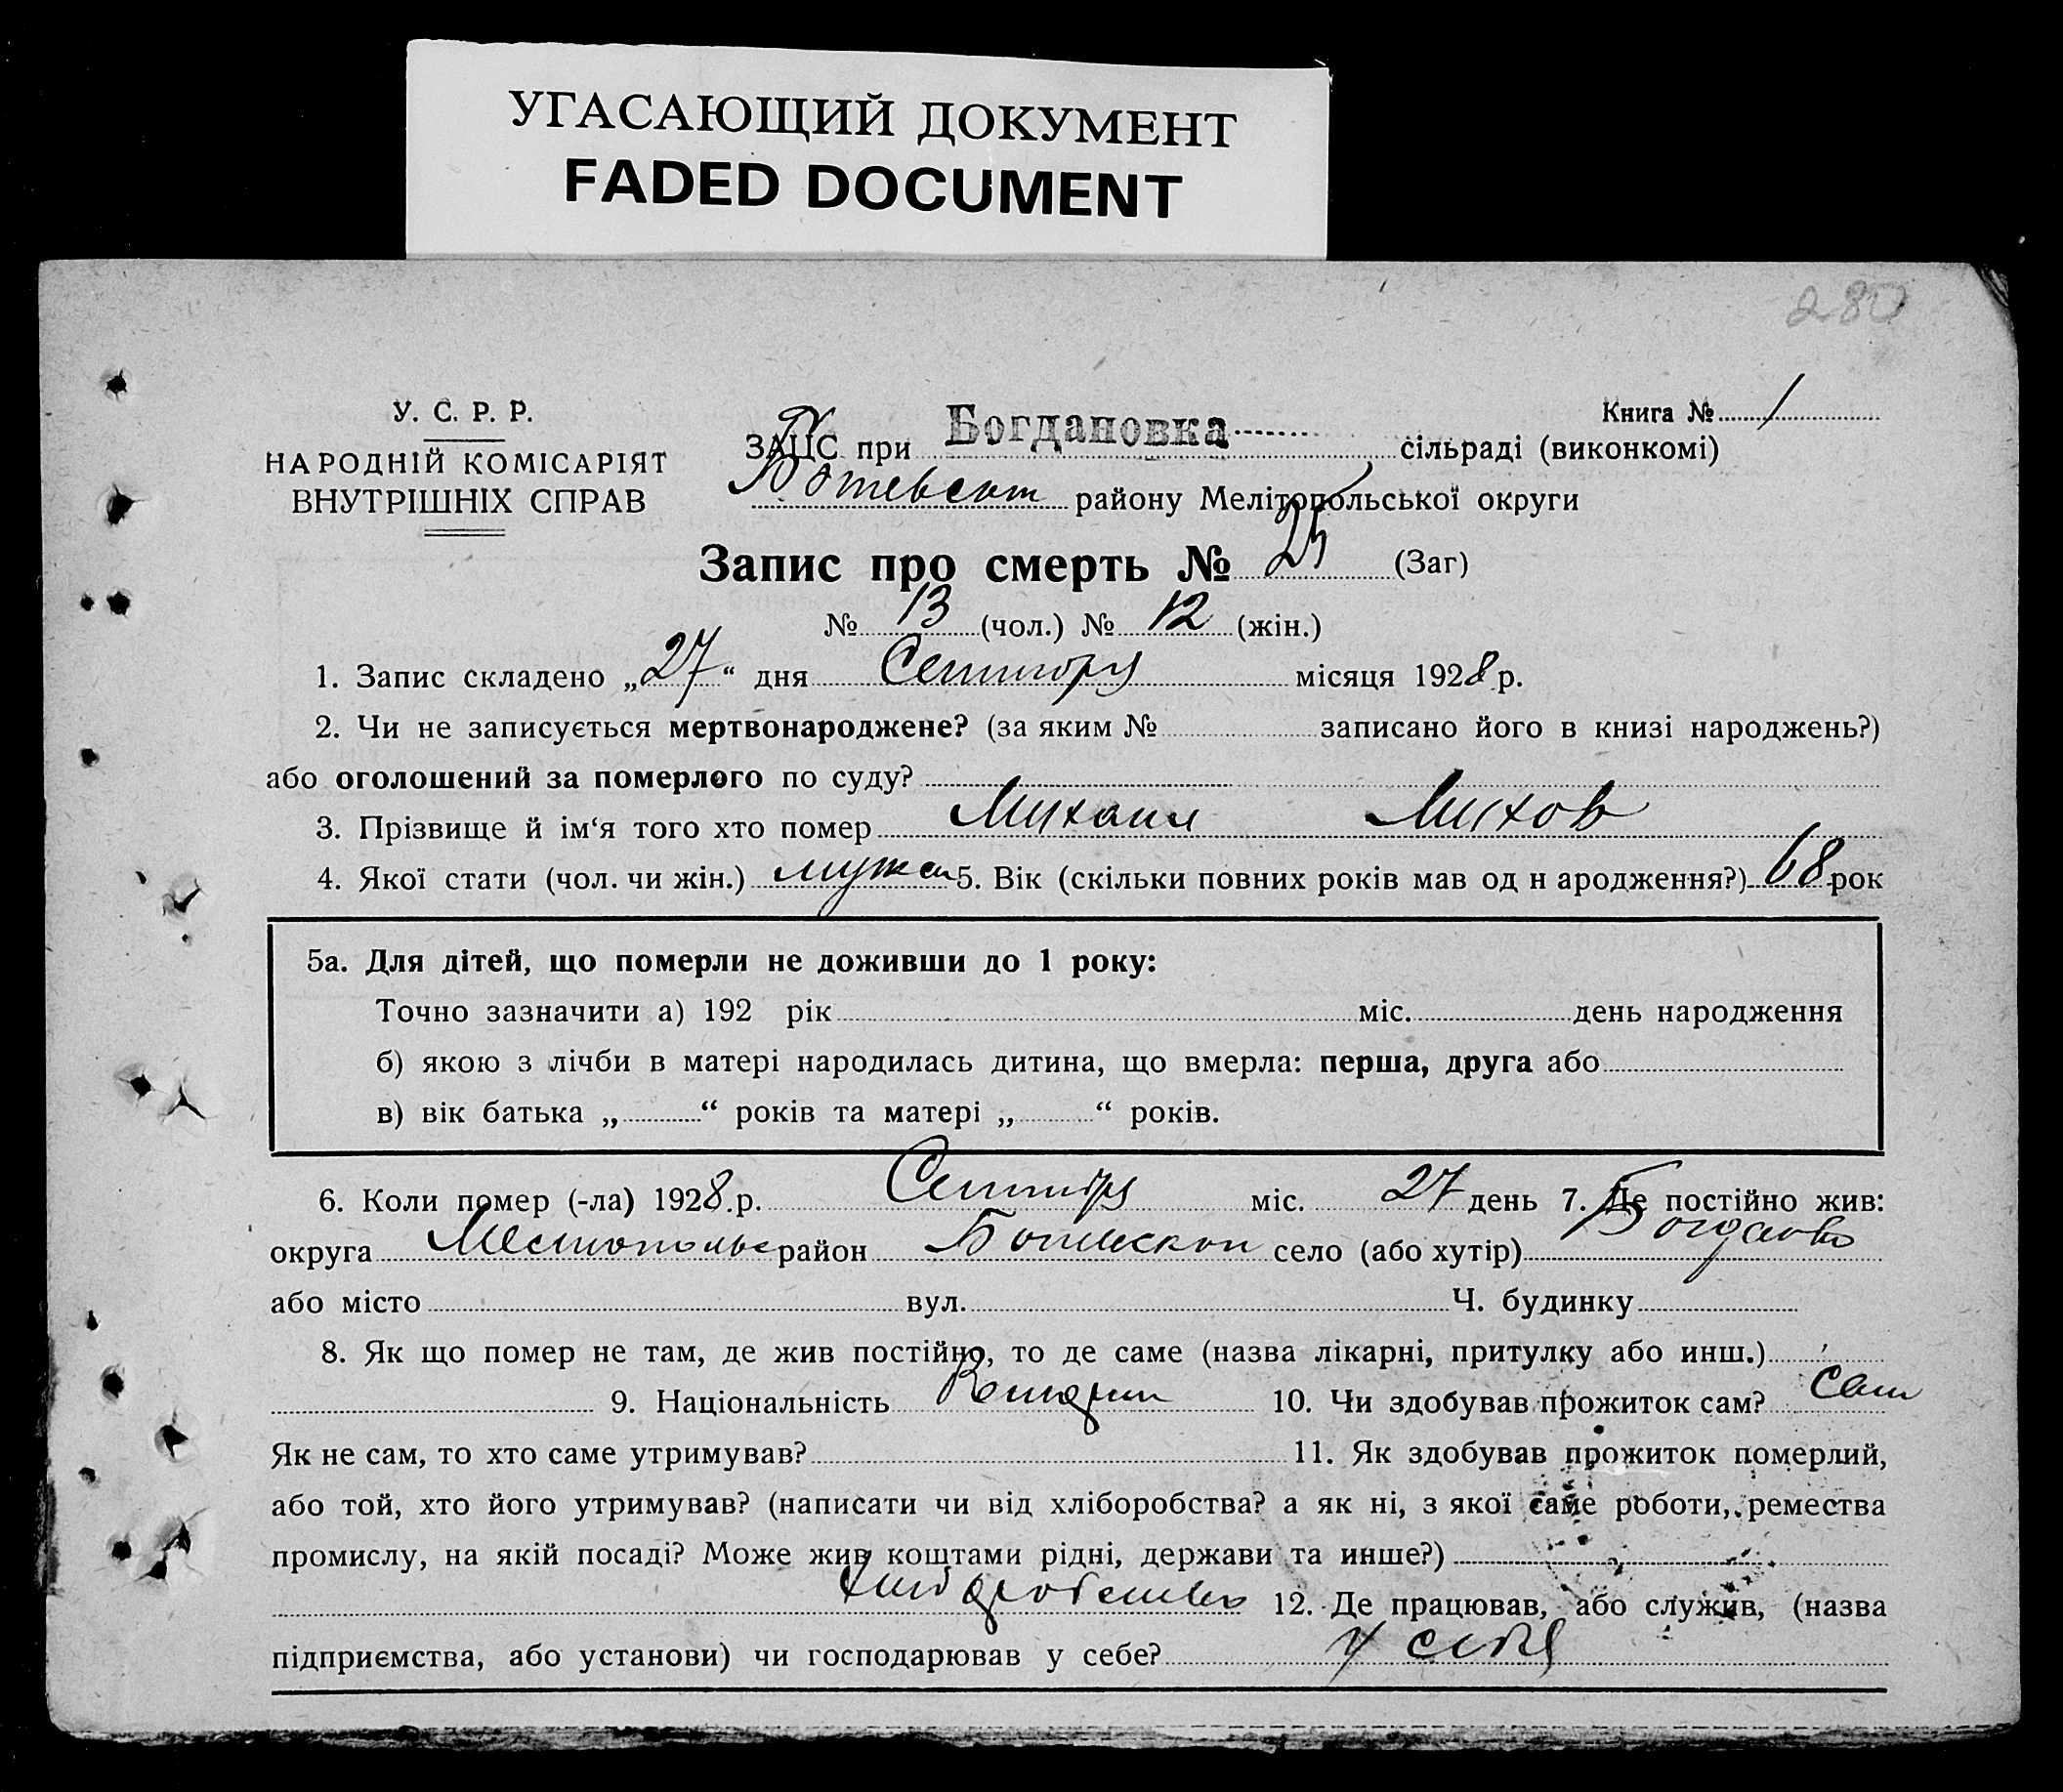 УГАСАЮЩИЙ ДОКУМЕНТ
FADED DOCUMENT
280
У. С. Р. Р.
НАРОДНІЙ КОМІСАРІЯТ
ВНУТРІШНІХ СПРАВ
Книга № 1
ЗАЦС при Богдановка сільраді (виконкомі)
району Мелітопольської округи
Запис про смерть № 25 (Заг)
№ 13 (чол.) № 12 (жін.)
1. Запис складено „27“ дня Сентября місяця 1928 р.
2. Чи не записується мертвонароджене? (за яким № записано його в книзі народжень?)
або оголошений за померлого по суду?
3. Прізвище й ім‘я того хто помер Михаил Митов
4. Якої стати (чол. чи жін.) мужск 5. Вік (скільки повних років мав од н ародження?) 68 рок
5а. Для дітей, що померли не доживши до 1 року:
Точно зазначити а) 192 рік міс. день народження
б) якою з лічби в матері народилась дитина, що вмерла: перша, друга або
в) вік батька „ “ років та матері „ “ років.
6. Коли помер (-ла) 1928.р. Сентябр міс. 27 день 7. Де постійно жив:
округа район село (або хутір) Богданов
або місто вул. Ч. будинку
8. Як що помер не там, де жив постійно, то де саме (назва лікарні, притулку або инш.)
9. Національність 10. Чи здобував прожиток сам? Сам
Як не сам, то хто саме утримував? 11. Як здобував прожиток померлий,
або той, хто його утримував? (написати чи від хліборобства? а як ні, з якої саме роботи, ремества
промислу, на якій посаді? Може жив коштами рідні, держави та инше?)
12. Де працював, або служив, (назва
підприємства, або установи) чи господарював у себе? у себя